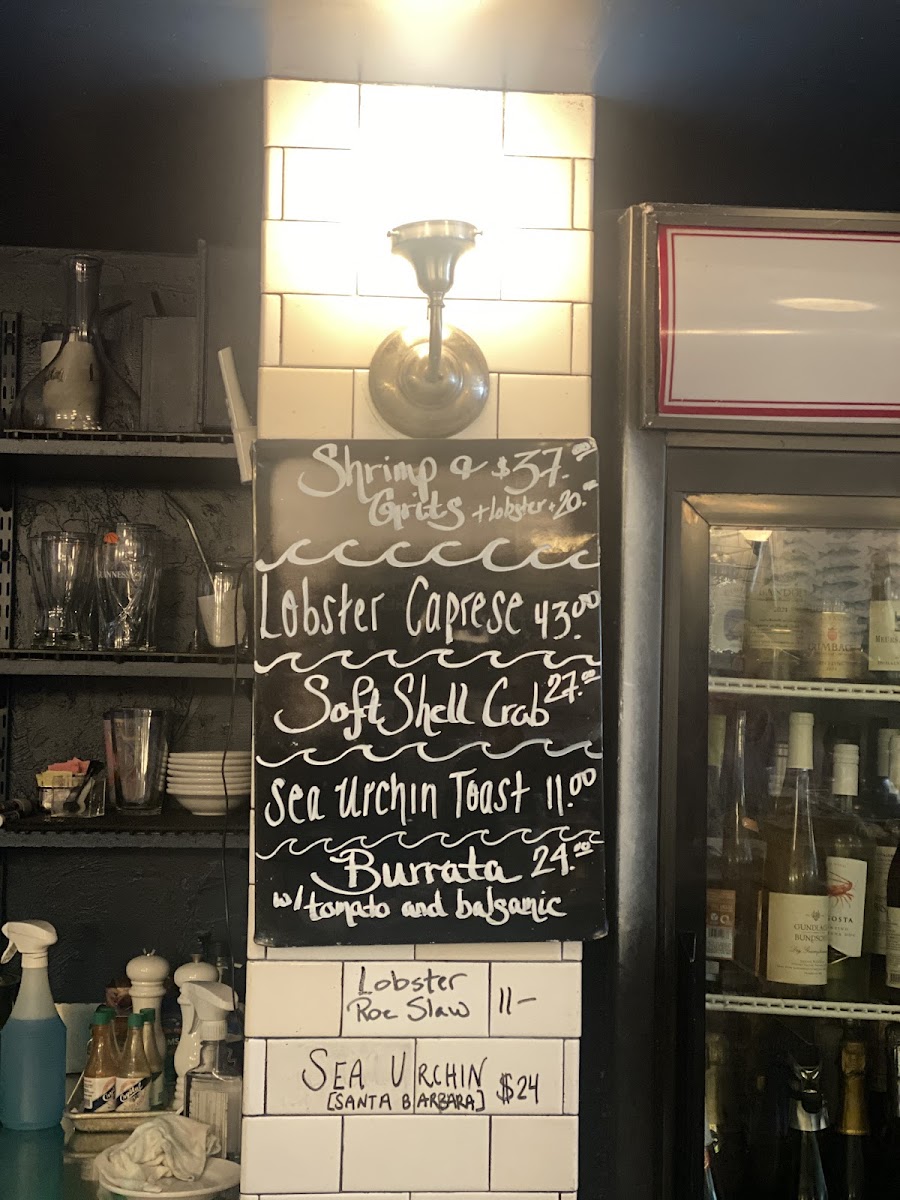 Shrimp & $37.00
Grits + lobster + 20.00
Lobster Caprese 43.00
Soft Shell Crab 27.00
Sea Urchin Toast 11.00
Burrata 24.00
w/ tomato and balsamic
Lobster
Roe Slaw 11-
SEA URCHIN $24
[SANTA BARBARA]
GUINNESS
GUNDLACH
BUNDSCHU